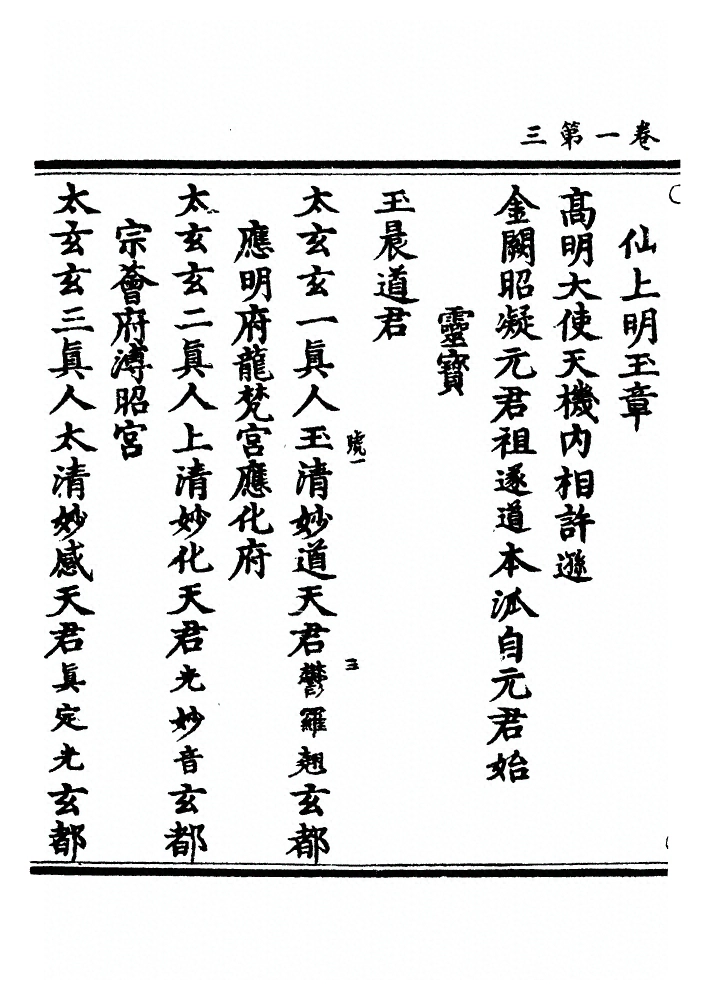 卷一第三
仙上明玉章
高明大使天機內相許遜
金闕昭凝元君祖遂道本派自元君始
靈寶
玉晨道君
號一
三
太玄玄一真人玉清妙道天君鬱羅翹玄都
應明府龍梵宮應化府
太玄玄二真人上清妙化天君光妙音玄都
宗薈府溥昭宮
太玄玄三真人太清妙感天君真定光玄都